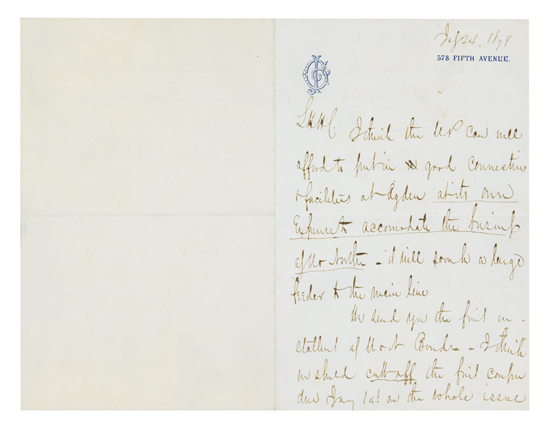 1878
578 FIFTH AVENUE.
I think the UP can well
afford to put in good connection
& facilities at Ogden at its own
Expense to accomodate the business
of No North - it will soon be a large
feeder to the main line
We send you the first in-
stallment of U & N Bonds - I think
we should cut off the first coupon
due Jany 1st on the whole issue